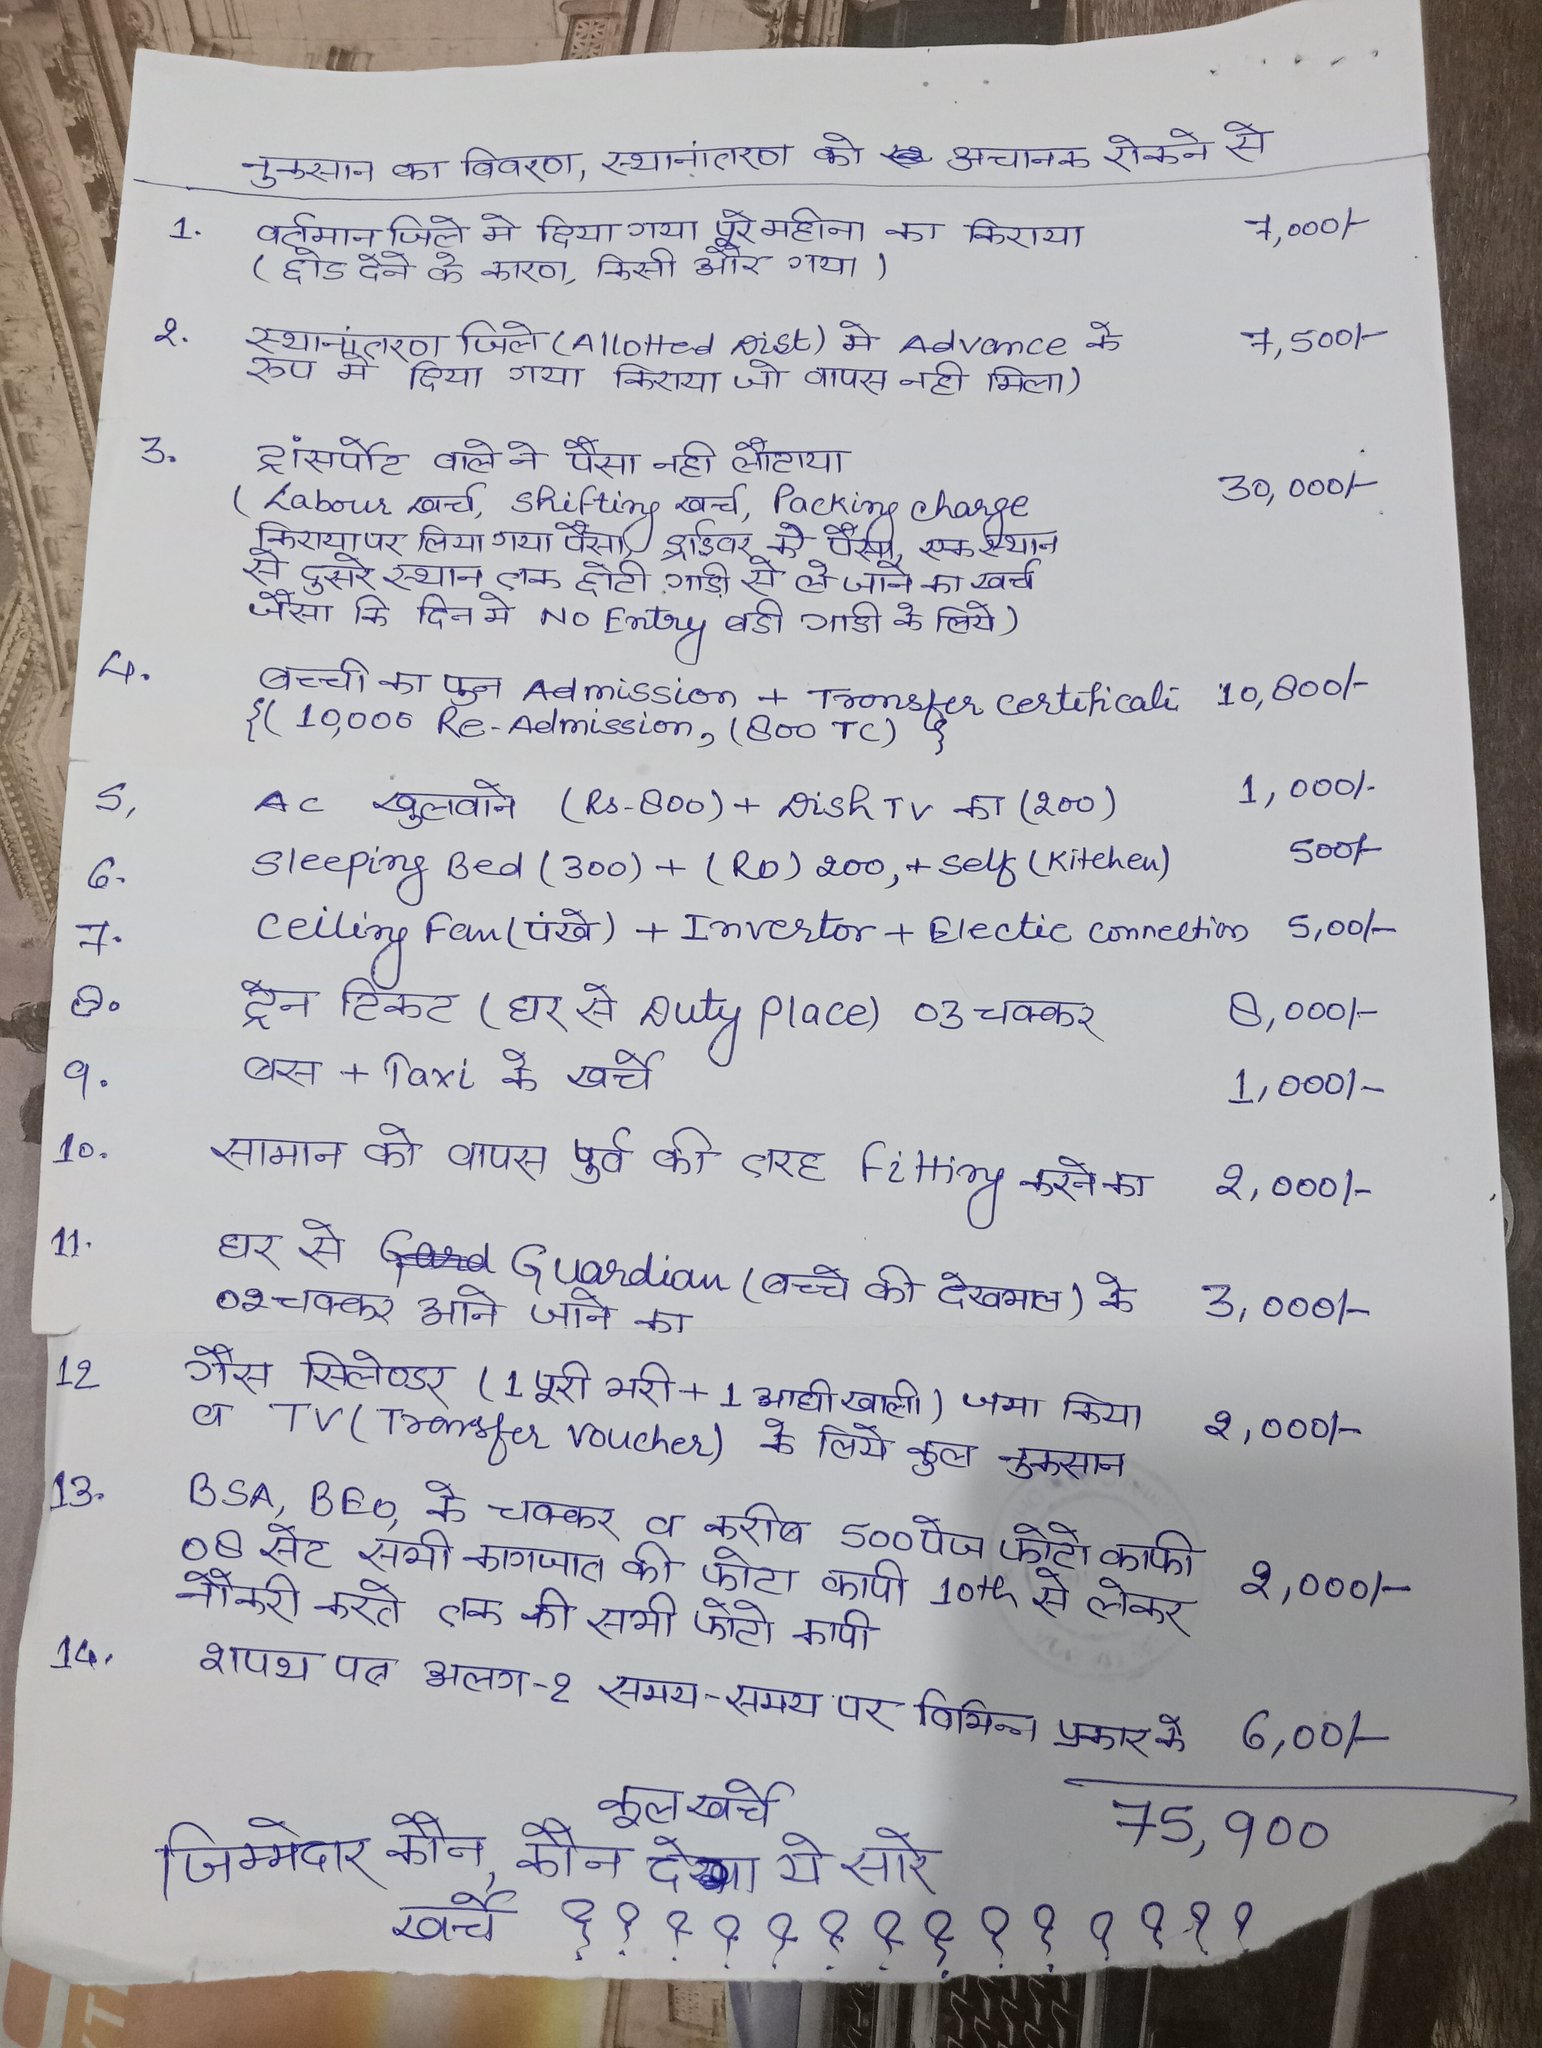 नुकसान का विवरण, स्थानांतरण को अचानक रोकने से
1. वर्तमान जिले मे दिया गया पूरे महीना का किराया 7,000/-
(छोड देने के कारण, किसी और गया)
2. स्थानांतरण जिले (Allotted Dist) मे Advance के 7,500/-
रूप मे दिया गया किराया जो वापस नही मिला)
3. ट्रांसर्पोट वाले ने पैसा नही लौटाया
(Labour खर्च, Shifting खर्च, Packing charge 30,000/-
किराया पर लिया गया पैसा, ड्राईवर को पैसा, एक स्थान
से दुसरे स्थान तक छोटी गाडी से ले जाने का खर्च
जैसा कि दिन मे No Entry बडी गाडी के लिये)
4. बच्ची का पुन Admission + Transfer certificati 10,800/-
{(10,000 Re-Admission, (800 TC) }
5, AC खुलवाने (Rs-800) + Dish TV का (200) 1,000/-
6. Sleeping Bed (300) + (RO) 200, + Self (Kitchen) 500/-
7. Ceiling Fan (पंखे) + Invertor + Electic connection 5,00/-
8. ट्रेन टिकट (घर से Duty Place) 03 चक्कर 8,000/-
9. बस + Taxi के खर्चे 1,000/-
10. सामान को वापस पुर्व की तरह fitting करने का 2,000/-
11. घर से Guardian (बच्चे की देखभाल) के 3,000/-
02 चक्कर आने जाने का
12 गैस सिलेण्डर (1 पूरी भरी + 1 आधी खाली) जमा किया 2,000/-
व TV (Transfer Voucher) के लिये कुल नुकसान
13. BSA, BEO, के चक्कर व करीब 500 पेज फोटो काफी
08 सेट सभी कागजात की फोटा कापी 10th से लेकर 2,000/-
नौकरी करते तक की सभी फोटो कापी
14. शपथ पत्र अलग-2 समय-समय पर विभिन्न प्रकार के 6,00/-
कूल खर्चे 75,900
जिम्मेदार कौन, कौन देगा ये सारे
खर्चे ? ? ? ? ? ? ? ? ? ? ? ? ? ?